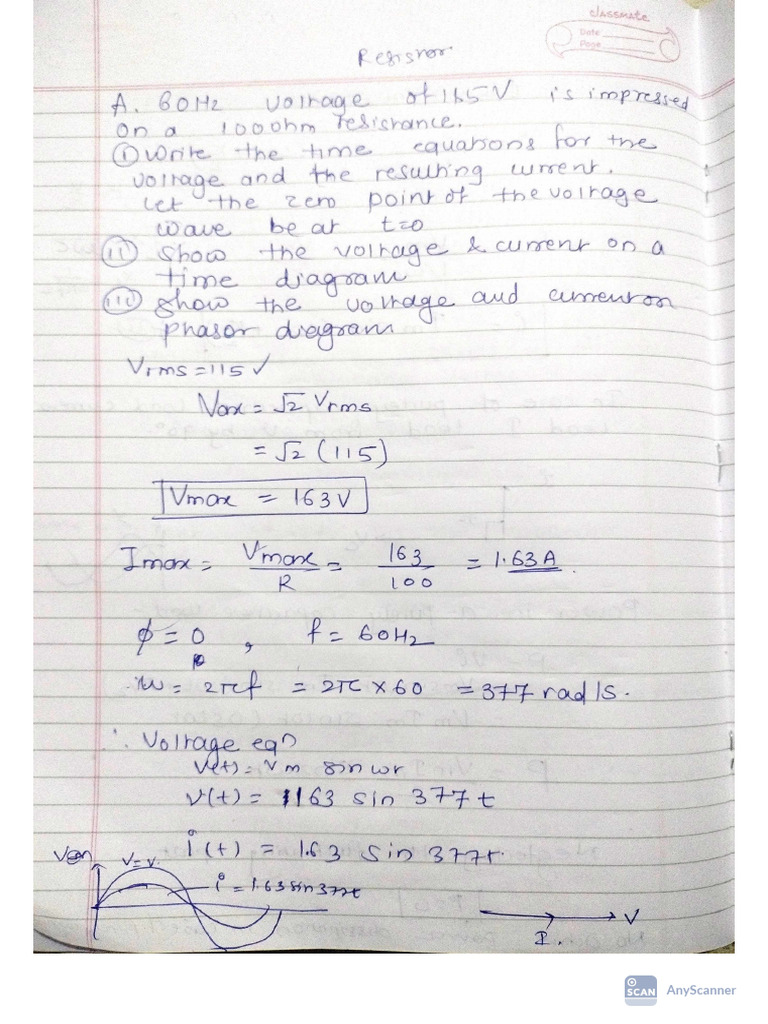 classmate
Date
Page
Resistor
A. 60Hz voltage of 115V is impressed
on a 100ohm resistance.
(i) Write the time equations for the
voltage and the resulting current.
Let the zero point of the voltage
wave be at t=0
(ii) Show the voltage & current on a
time diagram
(iii) Show the voltage and current on
phasor diagram
Vrms = 115V
Vax = √2 Vrms
= √2 (115)
Vmax = 163V
Imax = Vmax/R = 163/100 = 1.63A.
φ = 0, f = 60Hz
w = 2πf = 2π × 60 = 377 rad/s.
∴ Voltage eqn
v(t) = Vm sin wt
v(t) = 163 sin 377 t
i(t) = 1.63 sin 377t.
V=V.
i = 1.63 sin 377t
V
I.
SCAN AnyScanner